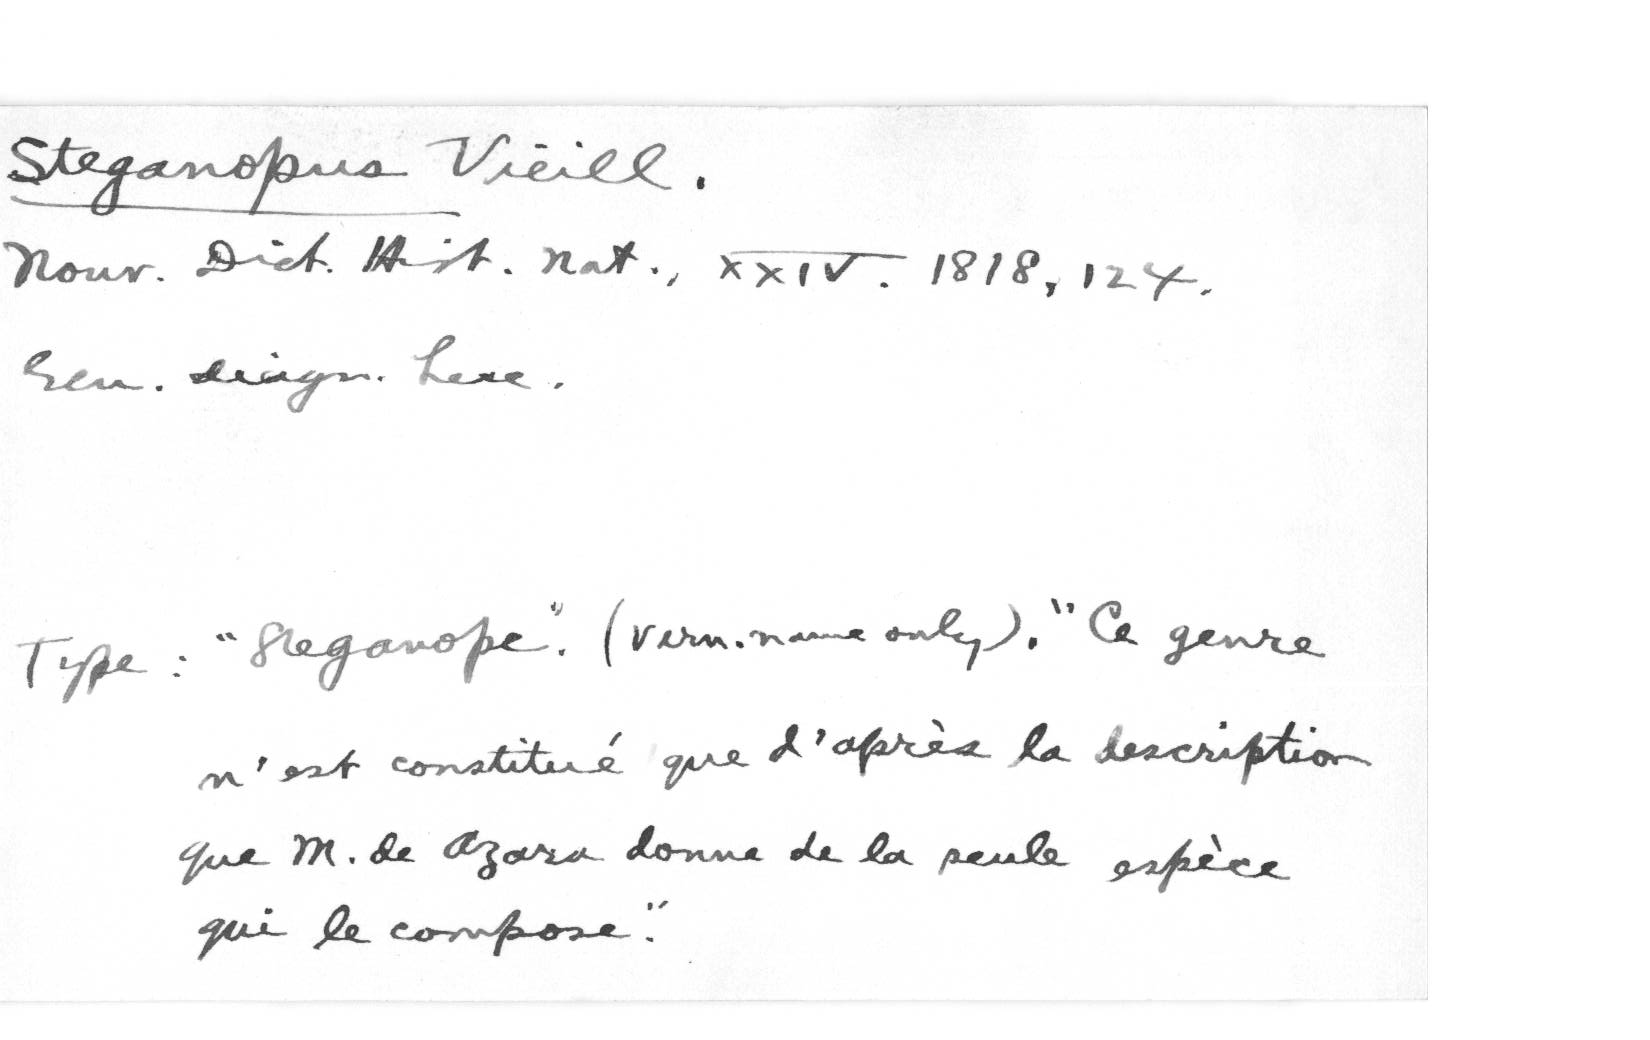 Steganopus Vieill.
Nouv. Dict. Hist. Nat., XXIV. 1818, 124.
Gen. diagn. here.
Type: "Steganope". (Vern. name only). "Ce genre
n'est constitué que d'après la description
que M. de Azara donne de la seule espèce
qui le compose."